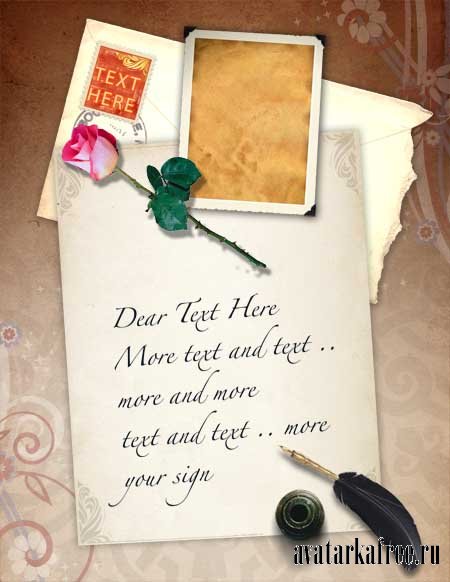 TEXT
HERE
Dear Text Here
More text and text ..
more and more
text and text .. more
your sign
avatarkafree.ru